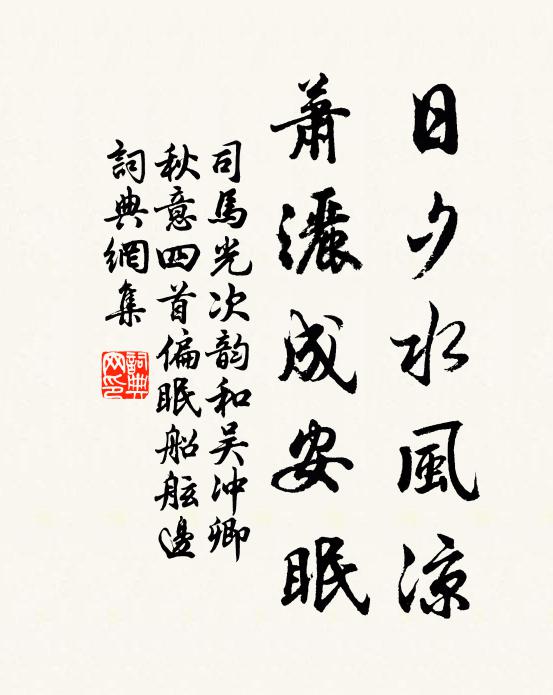 日夕水風涼
蕭灑成安眠
司馬光次韵和吴冲卿
秋意四首偏眠船舷邊
詞典網集
詞典
网印